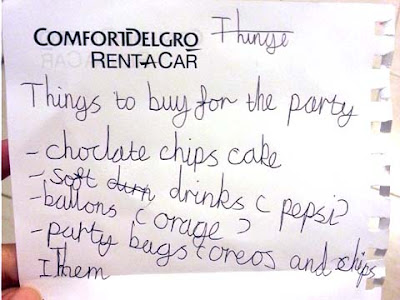 COMFORTDELGRO Things
RENT-A-CAR
Things to buy for the party
- choclate chips cake
- soft durn drinks ( pepsi )
- ballons ( orage )
- party bags ( oreos and chips
I them